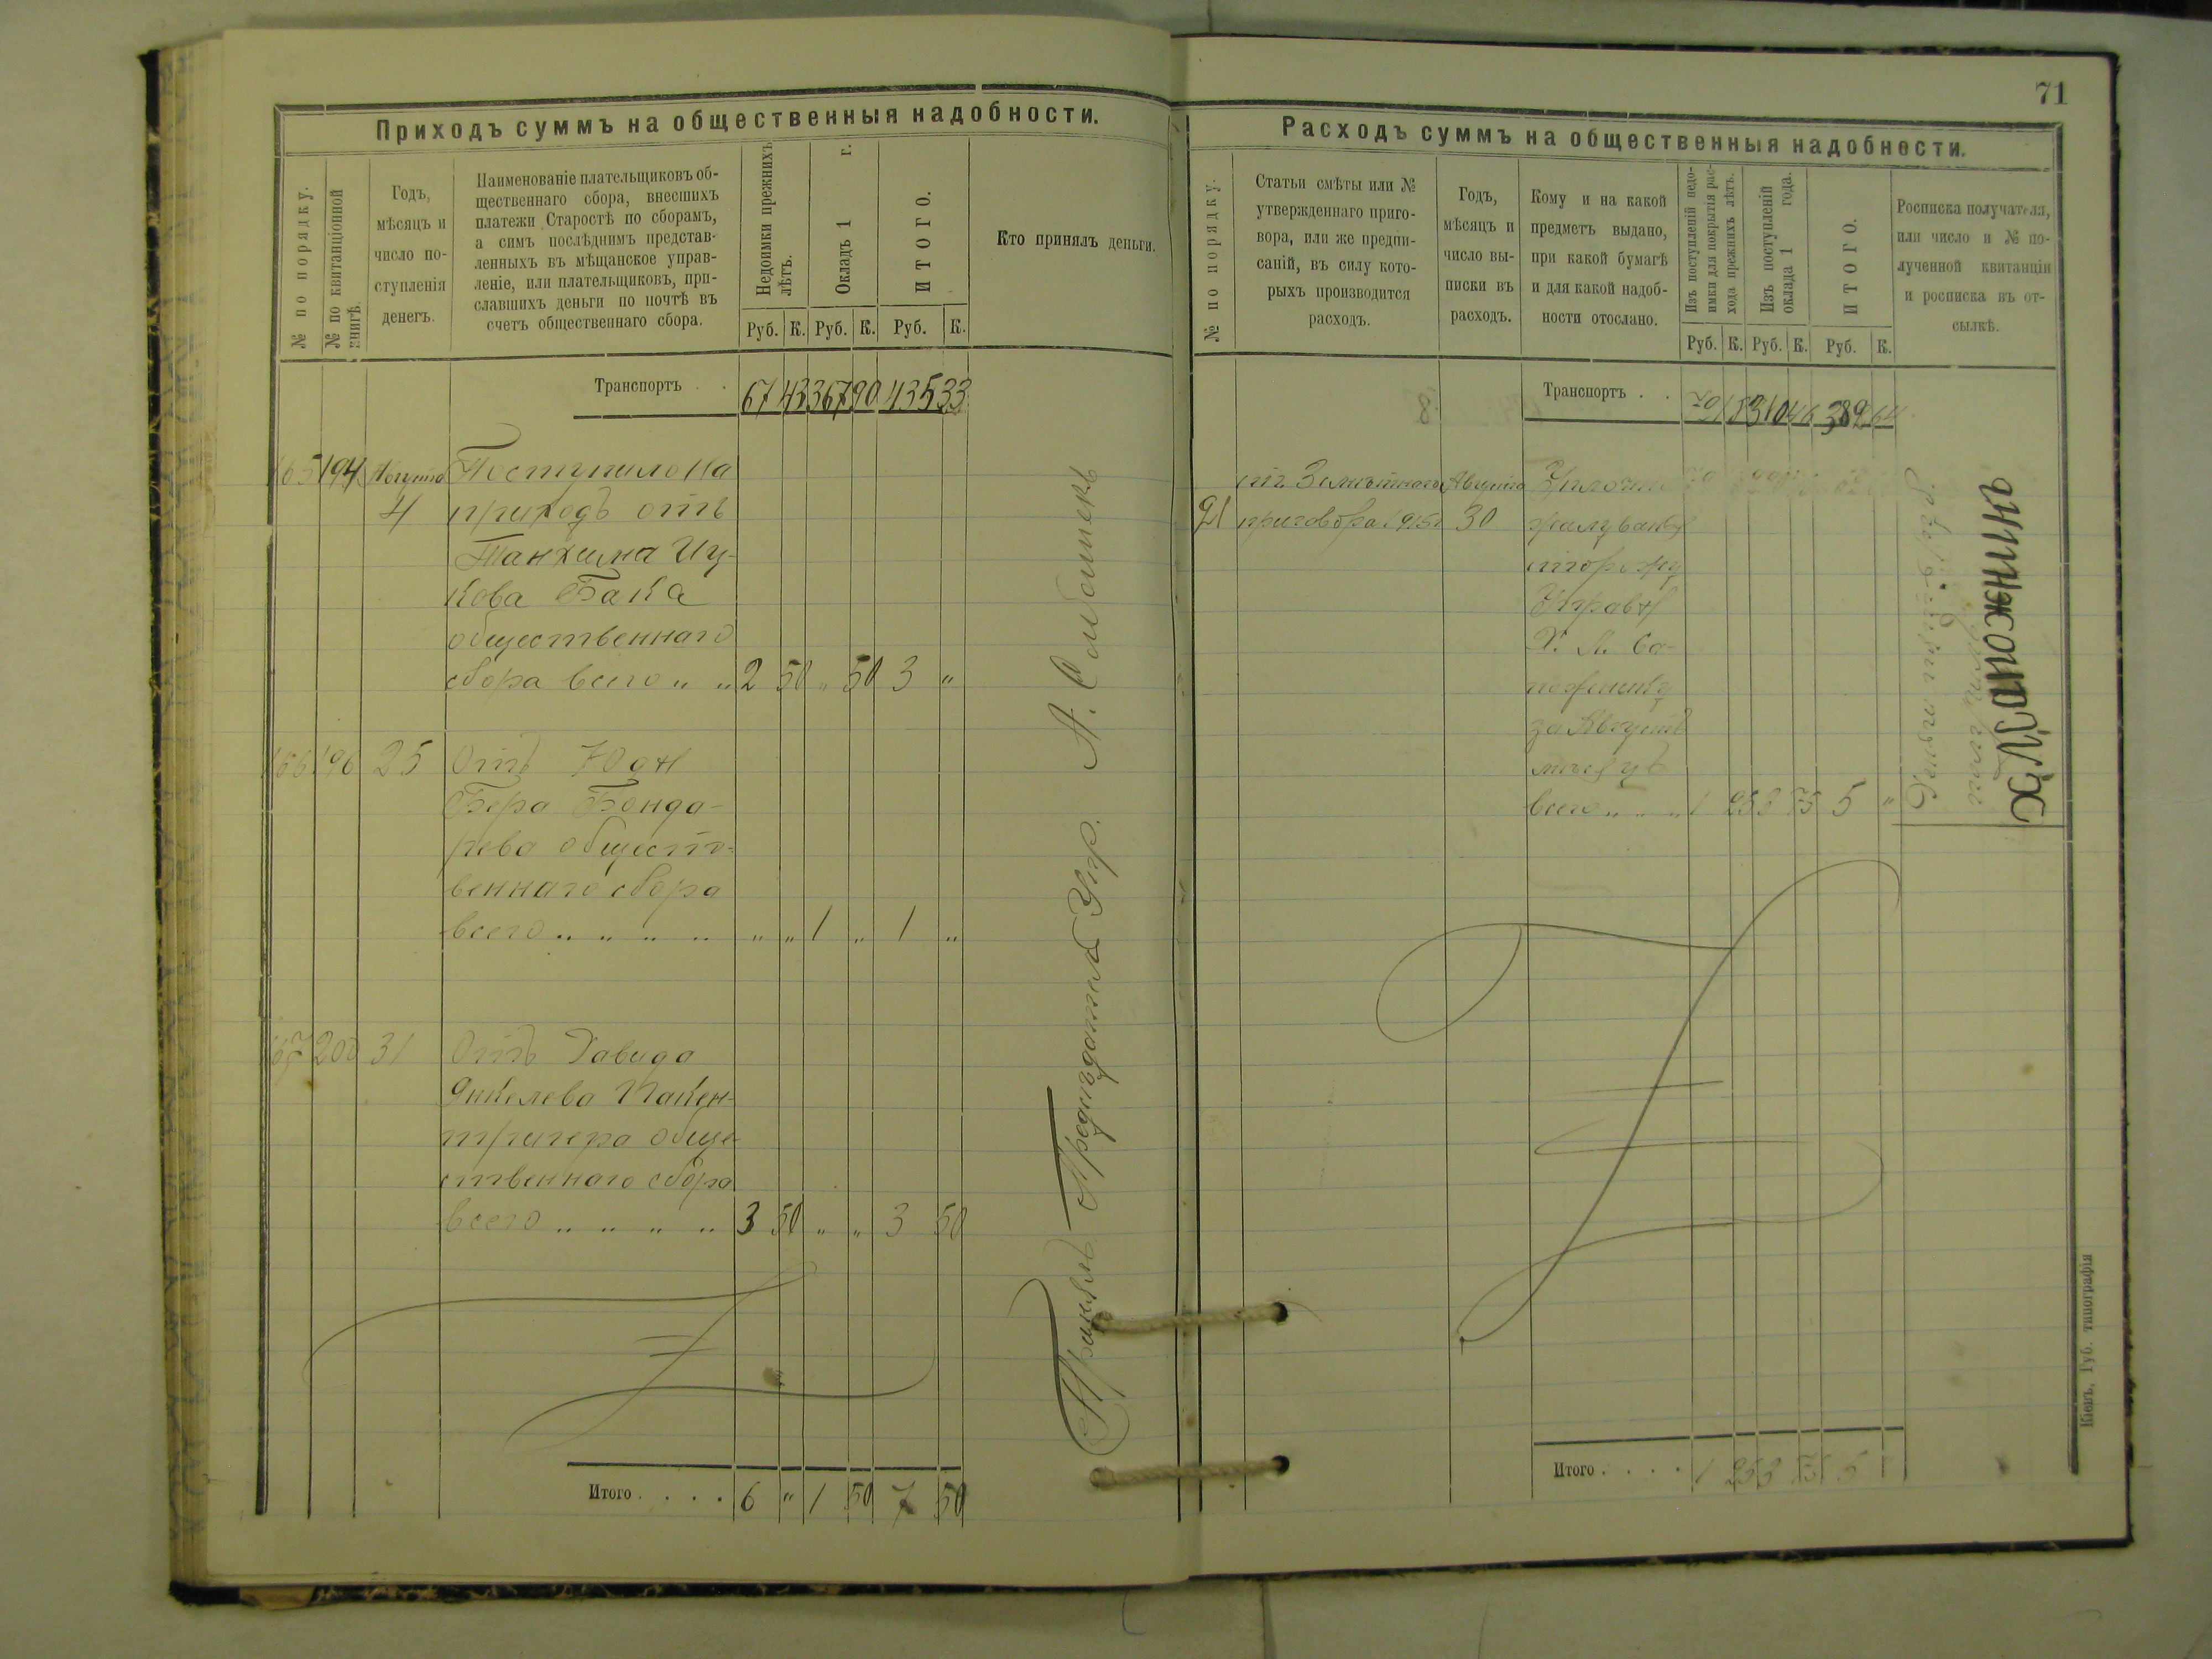 71
Приходъ суммъ на общественныя надобности.
№ по порядку.
№ по квитанціонной
книгѣ.
Годъ,
мѣсяцъ и
число по-
ступленія
денегъ.
Наименованіе плательщиковъ об-
щественнаго сбора, внесшихъ
платежи Старостѣ по сборамъ,
а симъ послѣднимъ представ-
ленныхъ въ мѣщанское управ-
леніе, или плательщиковъ, при-
славшихъ деньги по почтѣ въ
счетъ общественнаго сбора.
Недоимки прежнихъ
лѣтъ.
Окладъ 1 г.
ИТОГО.
Кто принялъ деньги.
Руб. К. Руб. К. Руб. К.
Транспортъ . . 67 43 367 90 435 33
165 194 Августа Поступило на
4 приходъ отъ
Танхума Иц-
кова Бака
общественнаго
сбора всего „ „ 2 50 „ 50 3 „
166 196 25 Отъ Юдк
Бера Бонда-
рева общест-
веннаго сбора
всего „ „ „ „ „ „ 1 „ 1 „
167 200 31 Отъ Давида
Янкелева Пакен-
трегера обще-
ственнаго сбора
всего „ „ „ „ 3 50 „ „ 3 50
Итого . . . . 6 „ 1 50 7 50
Принялъ Предсѣдатель Упр. А.
Расходъ суммъ на общественныя надобности.
№ по порядку.
Статьи смѣты или №
утвержденнаго приго-
вора, или же предпи-
саній, въ силу кото-
рыхъ производится
расходъ.
Годъ,
мѣсяцъ и
число вы-
писки въ
расходъ.
Кому и на какой
предметъ выдано,
при какой бумагѣ
и для какой надоб-
ности отослано.
Изъ поступленій недо-
имки для покрытія рас-
хода прежнихъ лѣтъ.
Изъ поступленій
оклада 1 года.
ИТОГО.
Росписка получателя,
или число и № по-
лученной квитанціи
и росписка въ от-
сылкѣ.
Руб. К. Руб. К. Руб. К.
Транспортъ . . 310 46 389 64
ст. 3 смѣтнаго Августа
21 приговора 1915 г 30 жалуванья
сторожу
Управы
Х. Л. Са-
пожнику
за Августъ
мѣсяцъ
всего „ „ „ 1 25 3 75 5 „
Х Л Сапожникъ
Итого . . . . 1 25 3 75 5 „
Кіевъ, Губ. типографія